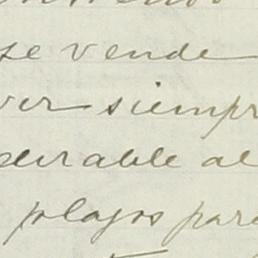 se vende
ver siempr
derable al
plazos para